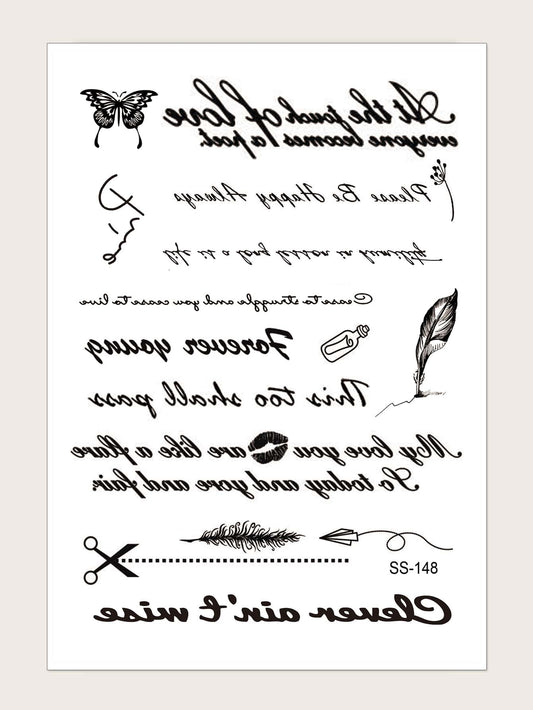 At the touch of love
everyone becomes a poet.
Please Be Happy Always
life it is a long lesson in humility
Cease to struggle and you cease to live
Forever young
This too shall pass
My love you are like a flare
So today and yore and fair.
SS-148
Clever ain't wise